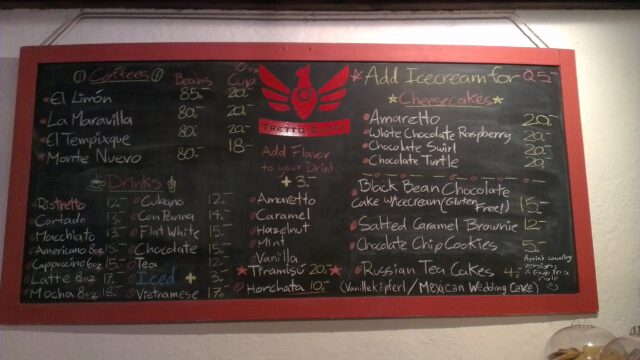 Coffees
Beans
10oz Cup
El Limón 85.- 20.-
La Maravilla 80.- 20.-
El Tempixque 80.- 20.-
Monte Nuevo 80.- 18.-
Drinks
Ristretto 12.-
Cortado 13.-
Macchiato 13.-
Americano 8oz 15.-
Cappuccino 6oz 15.-
Latte 8oz
Mocha 8oz 16.-
Cubano 12.-
Con Panna 14.-
Flat White 15.-
Chocolate 15.-
Tea
Iced + 3.-
Vietnamese 17.-
Add Flavor
to your Drink
+3.-
Amaretto
Caramel
Hazelnut
Mint
Vanilla
Tiramisú 20.-
Horchata 10.-
Add Icecream for Q5.-
Cheesecakes
Amaretto 20.-
White Chocolate Raspberry 20.-
Chocolate Swirl 20.-
Chocolate Turtle 20.-
Black Bean Chocolate
Cake w/icecream (Gluten Free!) 15.-
Salted Caramel Brownie 12.-
Chocolate Chip Cookies 5.-
Russian Tea Cakes 4.-
(Vanillekipferl / Mexican Wedding Cake)